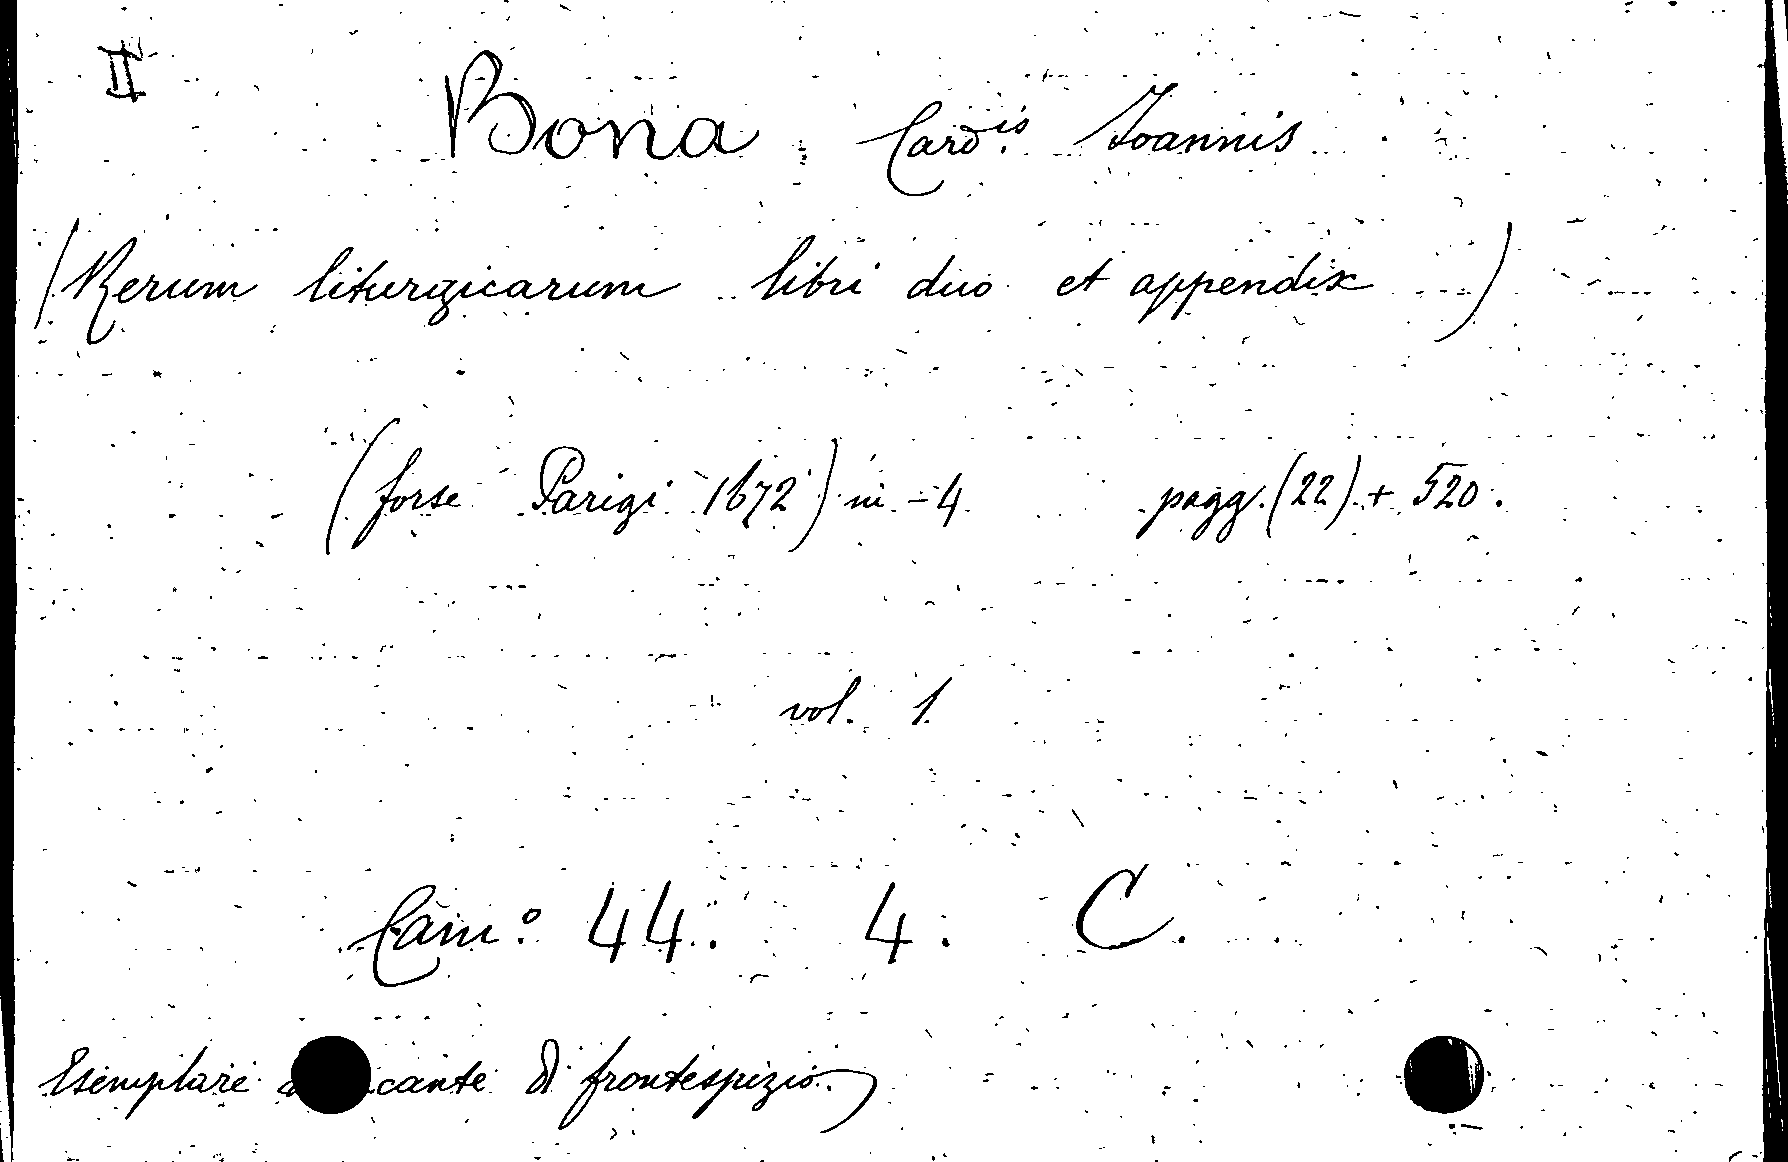 II
Bona Card.is Ioannis
(Rerum liturgicarum libri duo et appendix)
(forse Parigi 1672) in-4 pagg. (22) + 520.
vol. 1
Cam.° 44. 4. C.
Esemplare cante di frontespizio.